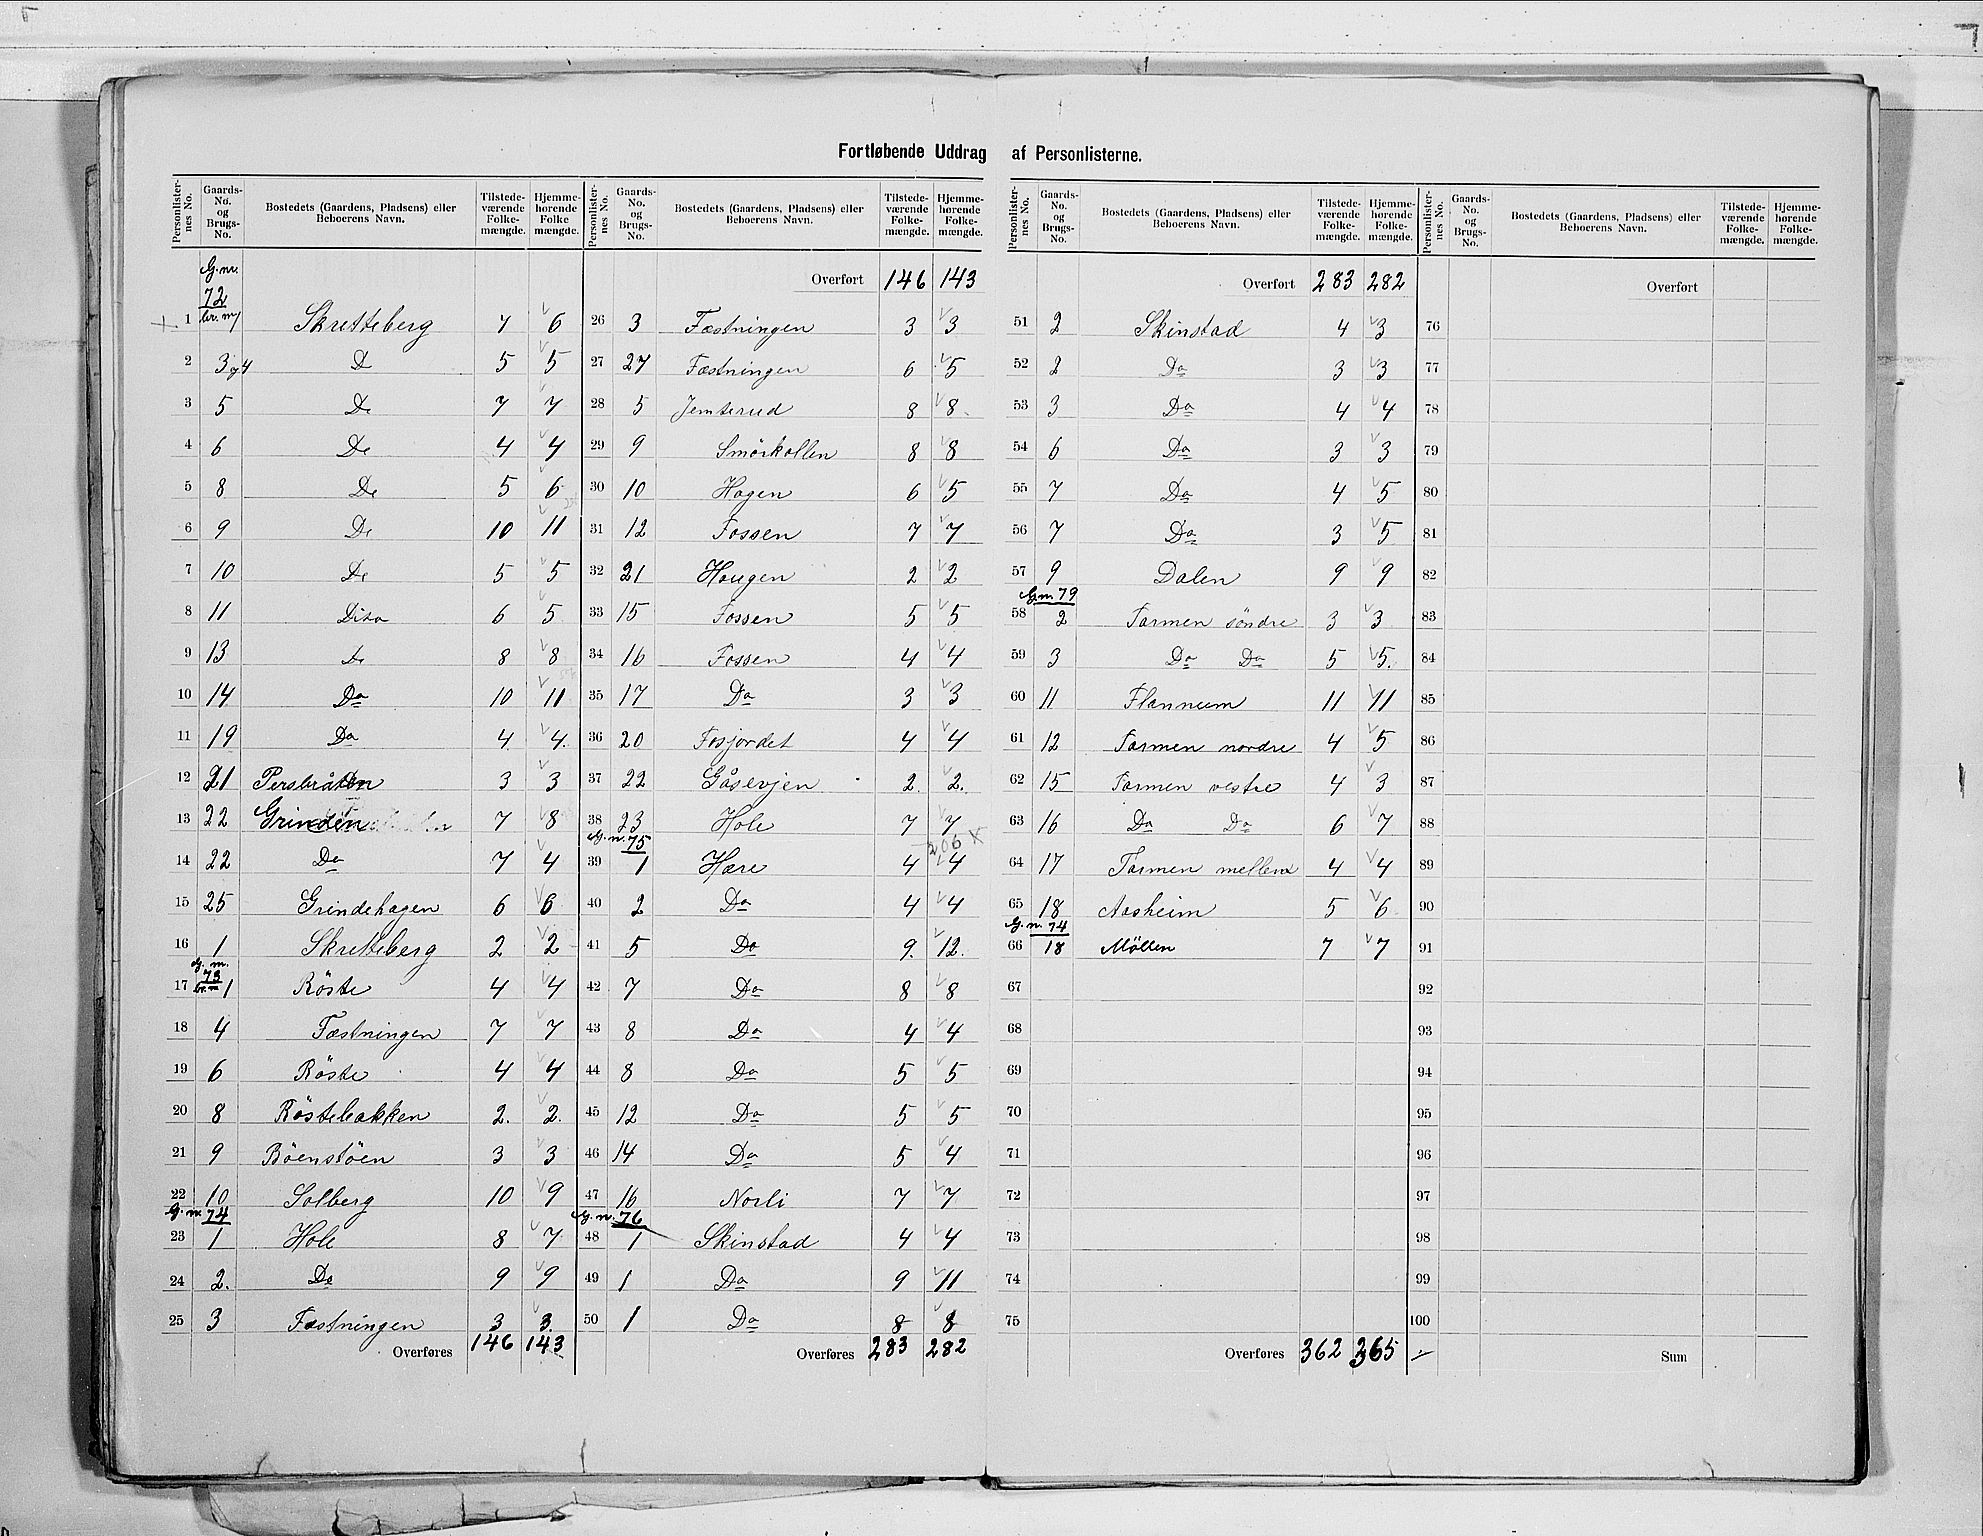 Fortløbende Uddrag af Personlisterne.
Personlister-nes No. | Gaards-No. og Brugs-No. | Bostedets (Gaardens, Pladsens) eller Beboerens Navn. | Tilstede-værende Folke-mængde. | Hjemme-hørende Folke mængde.
G. nr. 72 br. nr
1 | 1 | Skretteberg | 7 | 6
2 | 3 og 4 | Do | 5 | 5
3 | 5 | Do | 7 | 7
4 | 6 | Do | 4 | 4
5 | 8 | Do | 5 | 6
6 | 9 | Do | 10 | 11
7 | 10 | Do | 5 | 5
8 | 11 | Dito | 6 | 5
9 | 13 | Do | 8 | 8
10 | 14 | Do | 10 | 11
11 | 19 | Do | 4 | 4
12 | 21 | Persbråten | 3 | 3
13 | 22 | Grinden | 7 | 8
14 | 22 | Do | 7 | 4
15 | 25 | Grindehagen | 6 | 6
16 | 1 | Skretteberg | 2 | 2
G. nr. 73 br. nr
17 | 1 | Röste | 4 | 4
18 | 4 | Fæstningen | 7 | 7
19 | 6 | Röste | 4 | 4
20 | 8 | Röstebakken | 2. | 2.
21 | 9 | Böenstöen | 3 | 3
22 | 10 | Solberg | 10 | 9
G. nr. 74
23 | 1 | Hole | 8 | 7
24 | 2. | Do | 9 | 9
25 | 3 | Fæstningen | 3 | 3
Overføres | 146 | 143
Personlister-nes No. | Gaards-No. og Brugs-No. | Bostedets (Gaardens, Pladsens) eller Beboerens Navn. | Tilstede-værende Folke-mængde. | Hjemme-hørende Folke-mængde.
Overført | 146 | 143
26 | 3 | Fæstningen | 3 | 3
27 | 27 | Fæstningen | 6 | 5
28 | 5 | Jemterud | 8 | 8
29 | 9 | Smörkollen | 8 | 8
30 | 10 | Hagen | 6 | 5
31 | 12 | Fossen | 7 | 7
32 | 21 | Haugen | 2 | 2
33 | 15 | Fossen | 5 | 5
34 | 16 | Fossen | 4 | 4
35 | 17 | Do | 3 | 3
36 | 20 | Fosjordet | 4 | 4
37 | 22 | Gåsevjen | 2. | 2.
38 | 23 | Hole | 7 | 7
G. nr. 75 | 206 X
39 | 1 | Hære | 4 | 4
40 | 2 | Do | 4 | 4
41 | 5 | Do | 9. | 12.
42 | 7 | Do | 8 | 8
43 | 8 | Do | 4 | 4
44 | 8 | Do | 5 | 5
45 | 12 | Do | 5 | 5
46 | 14 | Do | 5 | 4
47 | 16 | Norli | 7 | 7
G. nr. 76
48 | 1 | Skinstad | 4 | 4
49 | 1 | Do | 9 | 11
50 | 1 | Do | 8 | 8
Overføres | 283 | 282
Personlister-nes No. | Gaards-No. og Brugs-No. | Bostedets (Gaardens, Pladsens) eller Beboerens Navn. | Tilstede-værende Folke-mængde. | Hjemme-hørende Folke-mængde.
Overført | 283 | 282
51 | 2 | Skinstad | 4 | 3
52 | 2 | Do | 3 | 3
53 | 3 | Do | 4 | 4
54 | 6 | Do | 3 | 3
55 | 7 | Do | 4 | 5
56 | 7 | Do | 3 | 5
57 | 9 | Dalen | 9 | 9
G. nr. 79
58 | 2 | Tarmen söndre | 3 | 3
59 | 3 | Do Do | 5 | 5.
60 | 11 | Flannum | 11 | 11
61 | 12 | Tarmen nordre | 4 | 5
62 | 15 | Tarmen vestre | 4 | 3
63 | 16 | Do Do | 6 | 7
64 | 17 | Tarmen mellem | 4 | 4
65 | 18 | Aasheim | 5 | 6
G. nr. 74
66 | 18 | Möllen | 7 | 7
67
68
69
70
71
72
73
74
75
Overføres | 362 | 365
Personlister-nes No. | Gaards-No. og Brugs-No. | Bostedets (Gaardens, Pladsens) eller Beboerens Navn. | Tilstede-værende Folke-mængde. | Hjemme-hørende Folke-mængde.
Overført
76
77
78
79
80
81
82
83
84
85
86
87
88
89
90
91
92
93
94
95
96
97
98
99
100
Sum